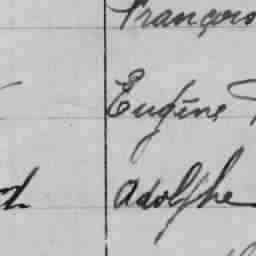 François
Eugène
Adolphe